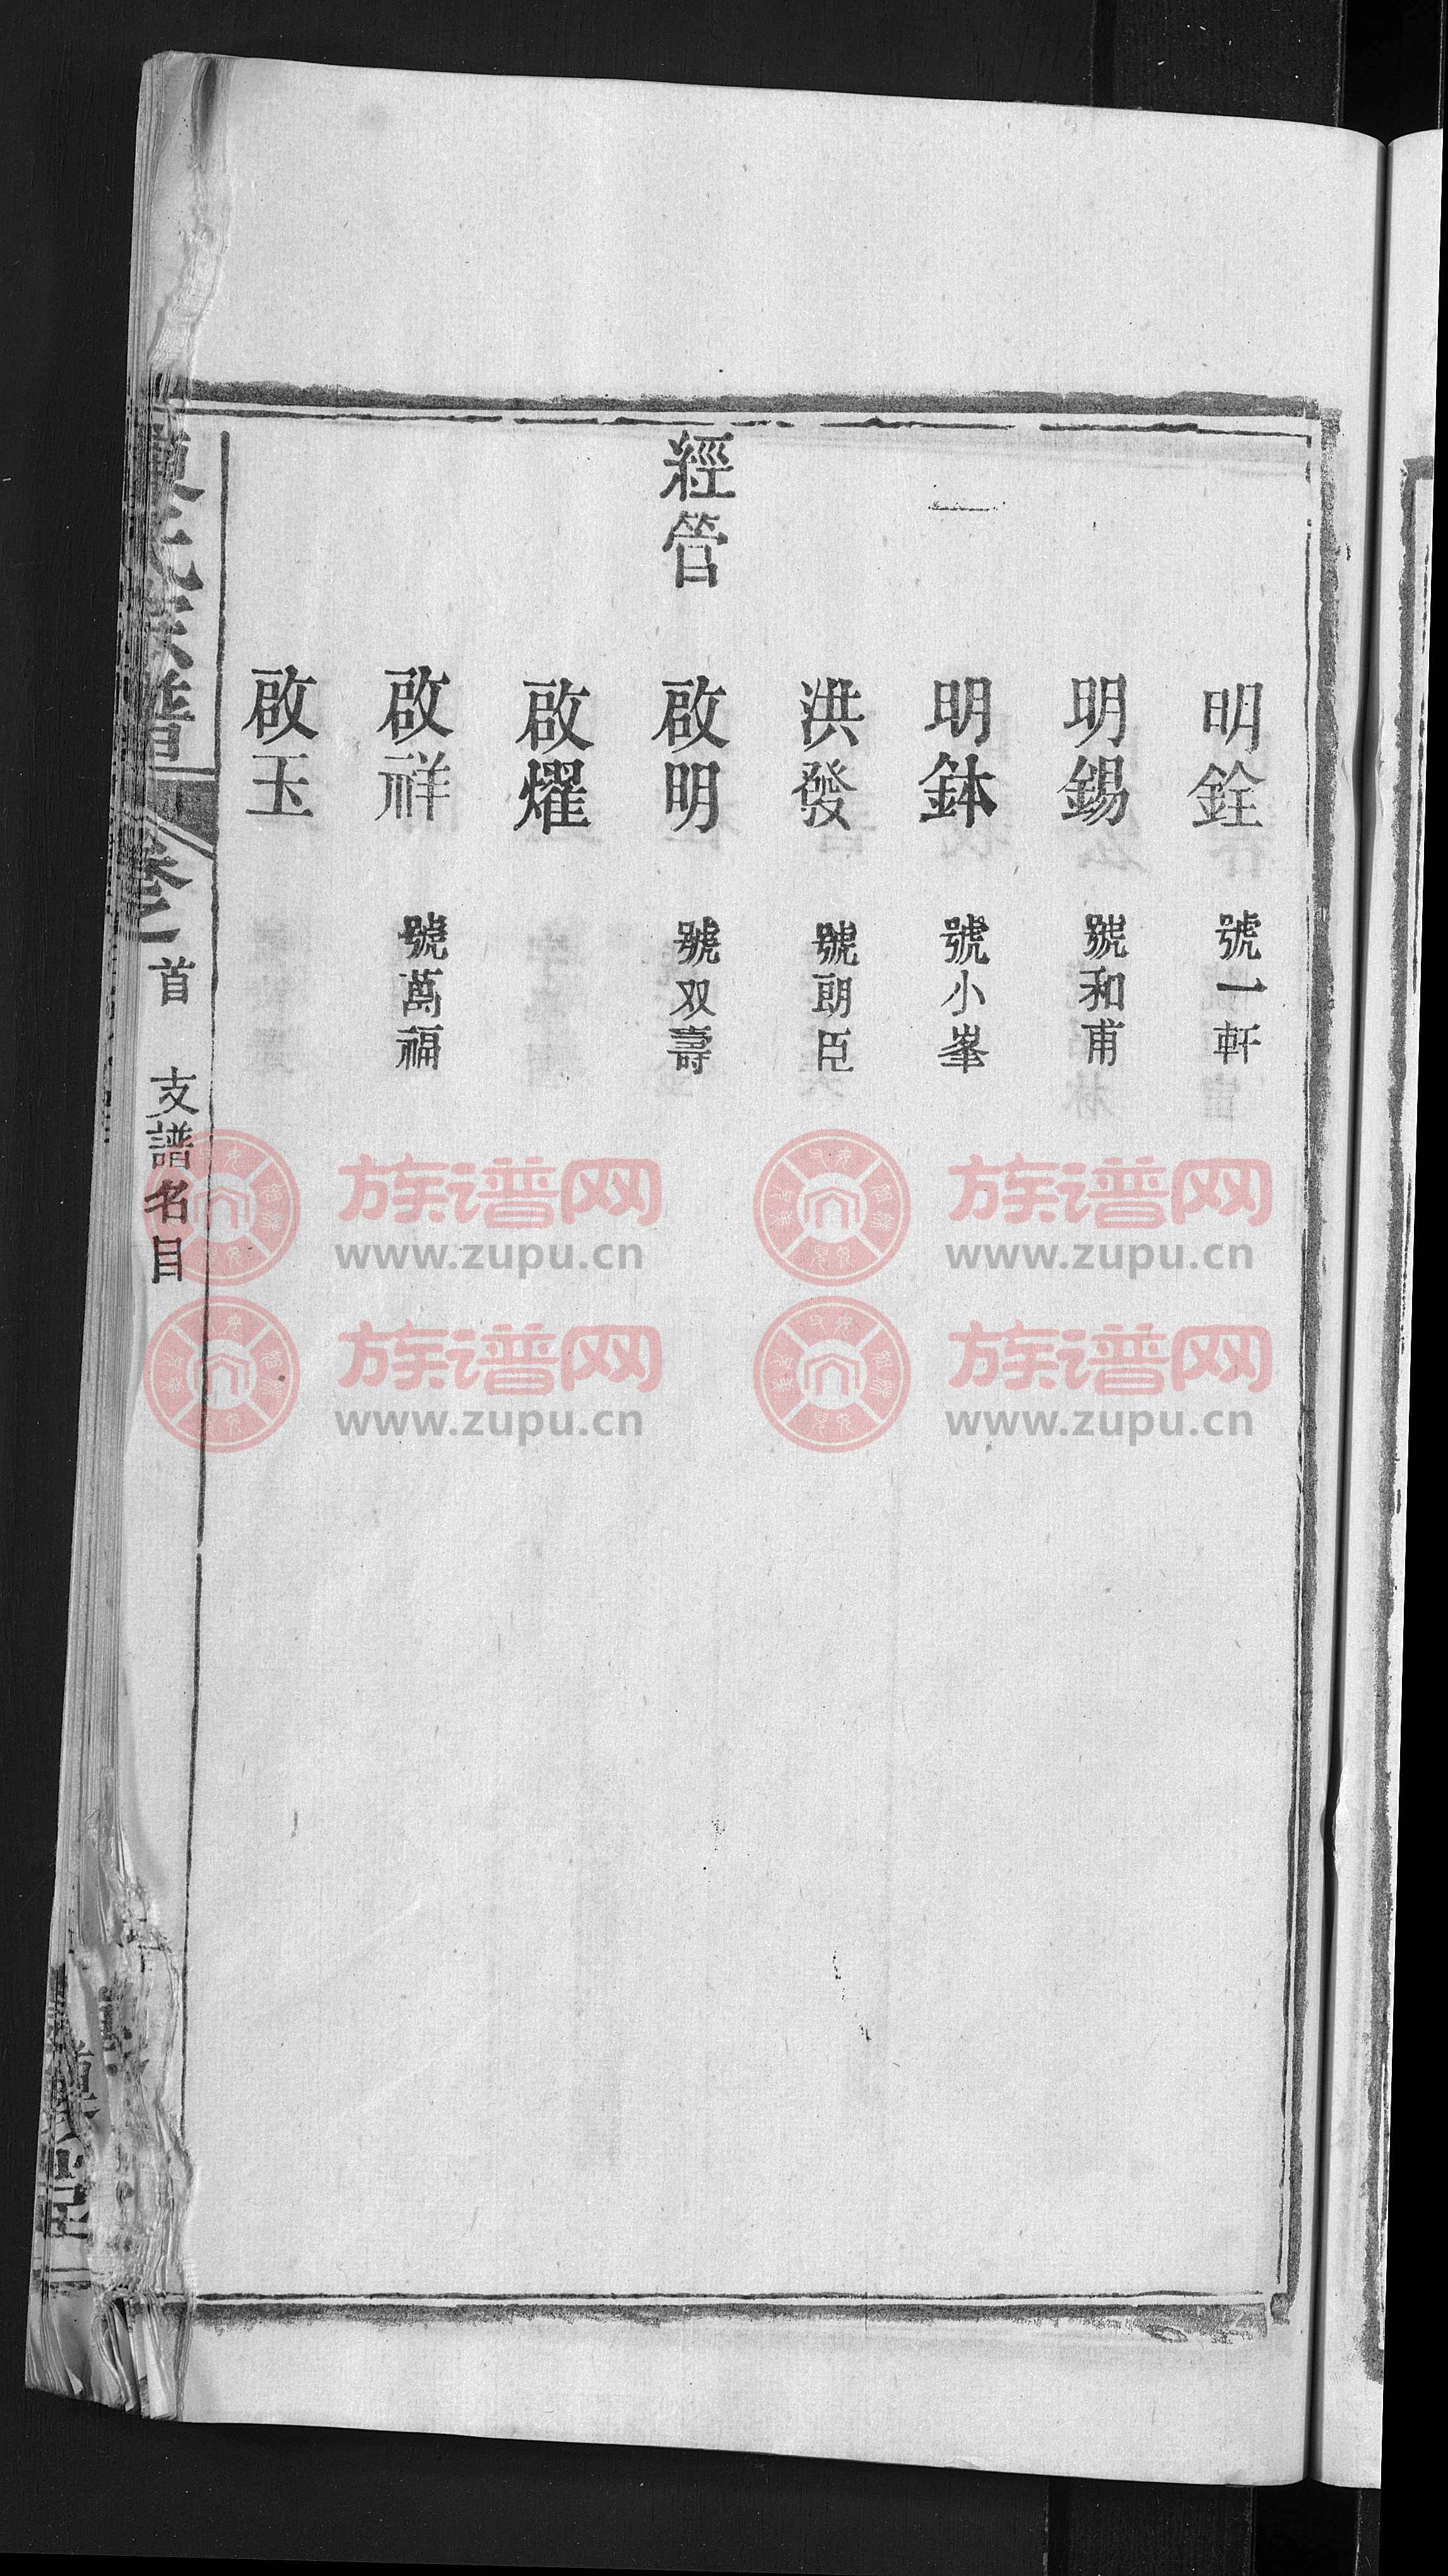 明銓 號一軒
明錫 號和甫
明鉢 號小峯
洪發 號朗臣
經管 啟明 號双壽
啟燿
啟祥 號萬福
啟玉
氏宗譜 卷一首 支譜名目
族谱网
www.zupu.cn
族谱网
www.zupu.cn
族谱网
www.zupu.cn
族谱网
www.zupu.cn